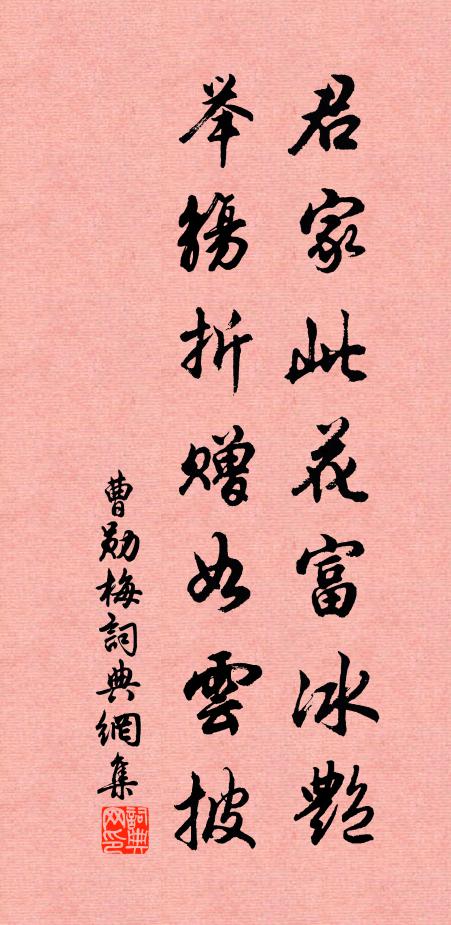 君家此花富冰艷
举觴折贈如雲披
曹勛梅詞典網集
詞典网印